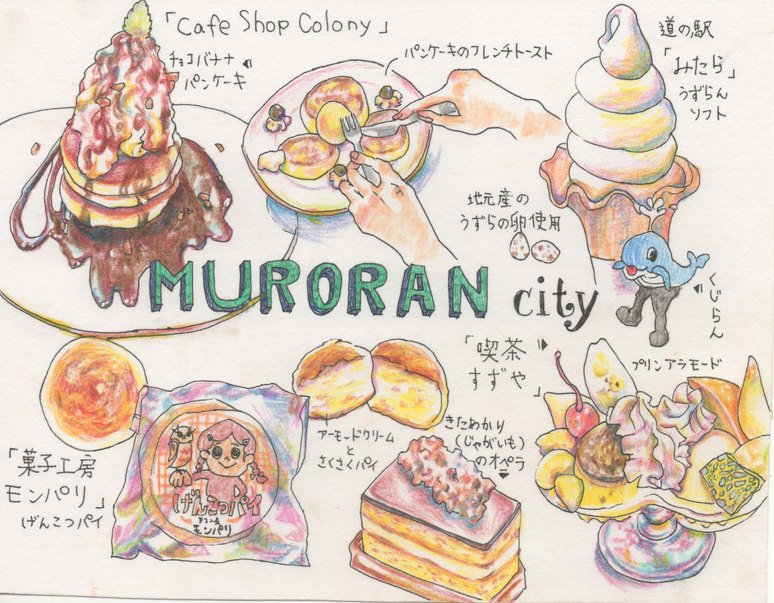 「Cafe Shop Colony」
チョコバナナ
パンケーキ
パンケーキのフレンチトースト
道の駅
「みたら」
うずらん
ソフト
地元産の
うずらの卵使用
MURORAN city
くじらん
「喫茶
すずや」
プリンアラモード
アーモンドクリーム
と
さくさくパイ
きたあかり
(じゃがいも)
のオペラ
「菓子工房
モンパリ」
げんこつパイ
げんこつパイ
モンパリ